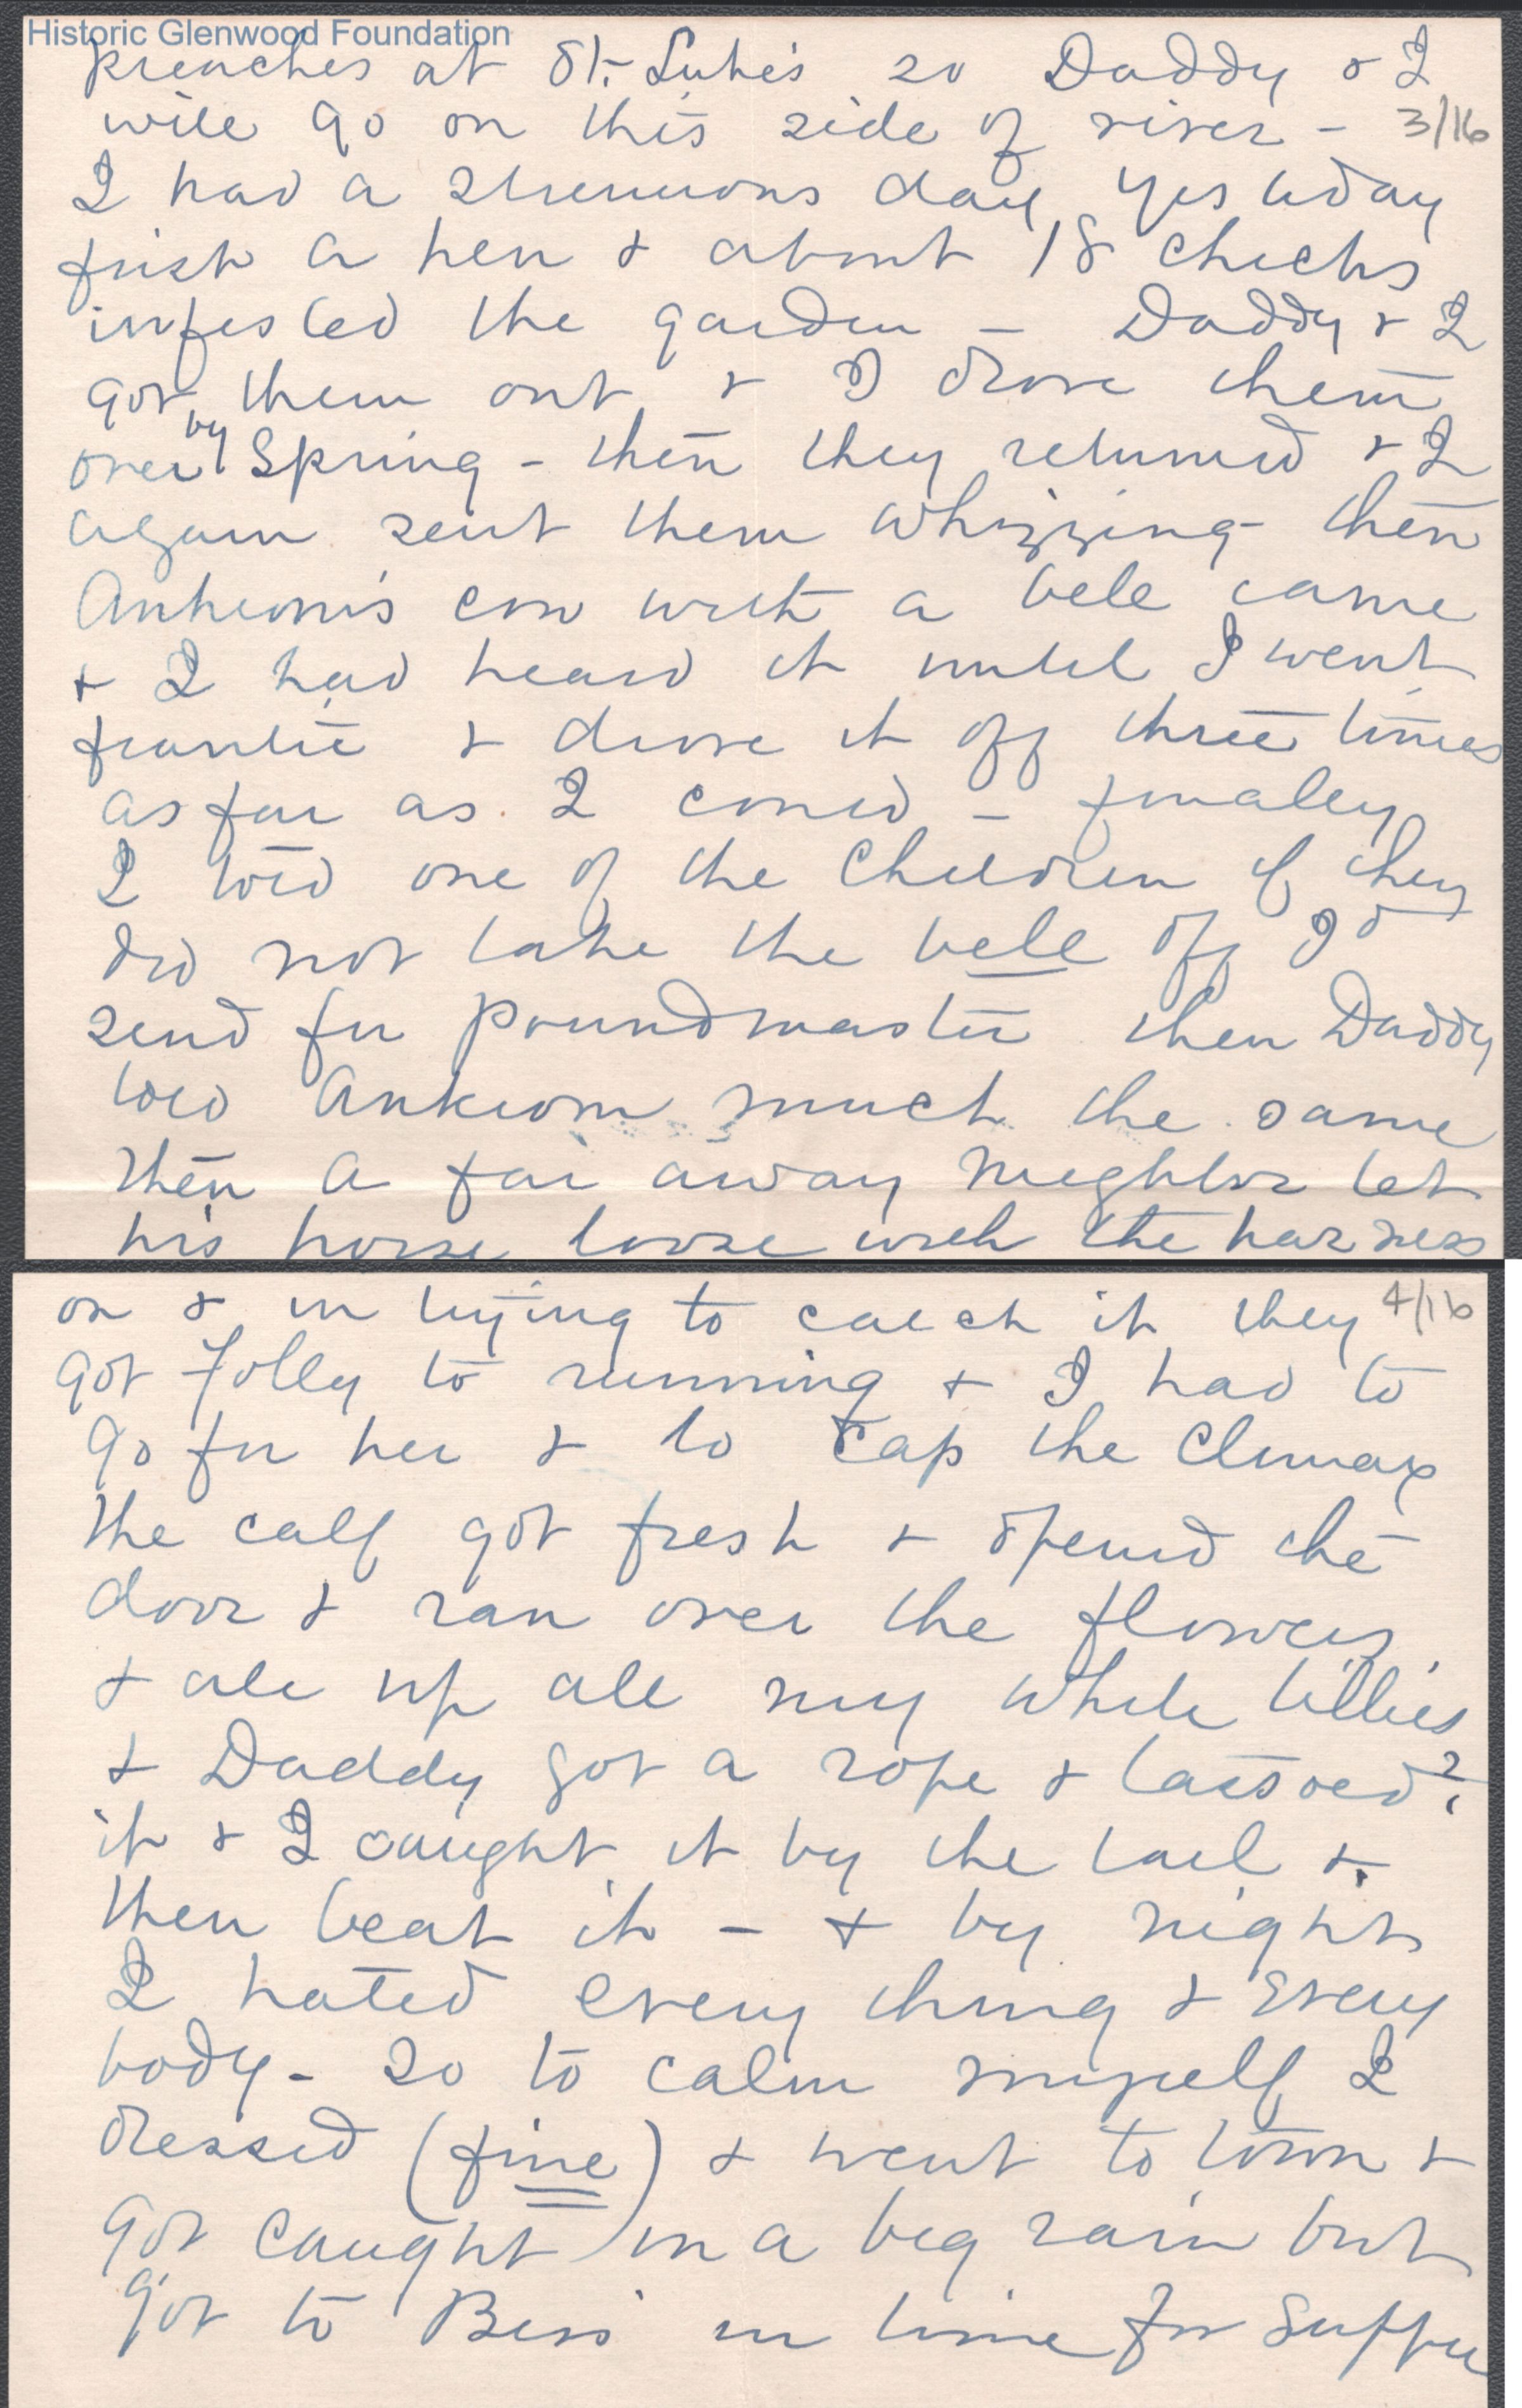 Historic Glenwood Foundation
preaches at St. Luke's so Daddy & I
will go on this side of river - 3/16
I had a strenuous day yesterday
first a hen & about 18 chicks
infested the garden - Daddy & I
got them out & I drove them
over by Spring - then they returned & I
again sent them whizzing - then
Ankrom's cow with a bell came
& I had heard it until I went
frantic & drove it off three times
as far as I could - finally
I told one of the children if they
did not take the bell off I'd
send for poundmaster then Daddy
told Ankrom much the same
then a far away neighbor let
his horse loose with the harness
on & in trying to catch it they 4/16
got Folly to running & I had to
go for her & to cap the climax
the calf got fresh & opened the
door & ran over the flowers
& ate up all my white lillies
& Daddy got a rope & lassoed?
it & I caught it by the tail &
then beat it - & by night
I hated every thing & every
body - so to calm myself I
dressed (fine) & went to town &
got caught in a big rain but
got to Bess' in time for supper